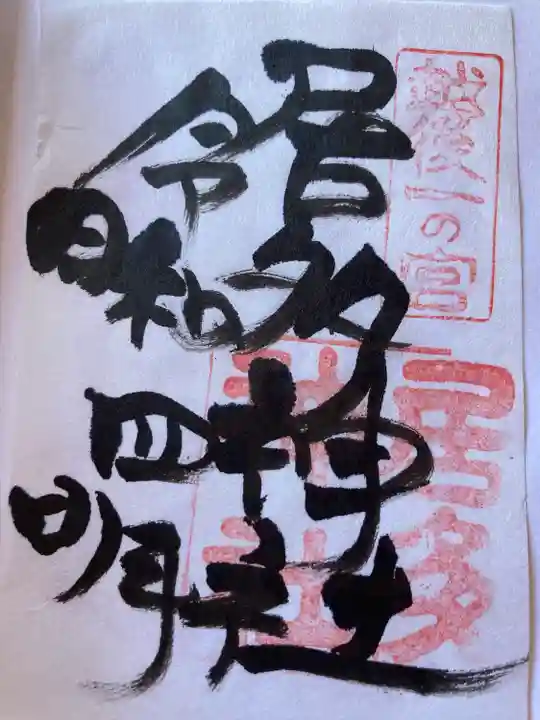 越後一の宮
居多神社
居多神社
令和四
日
明